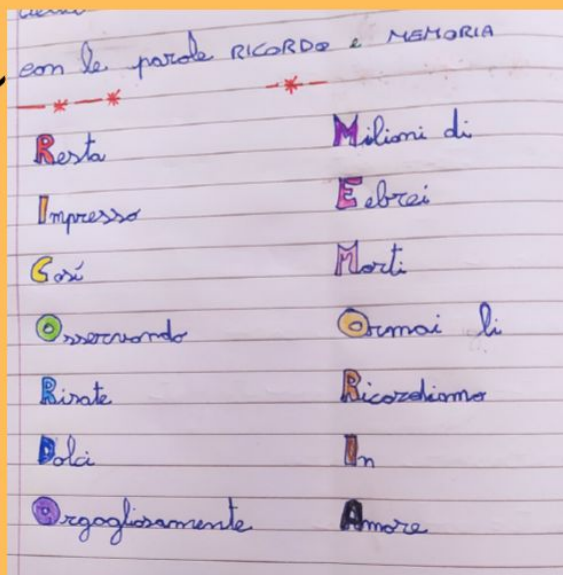 con le parole RICORDO e MEMORIA
Resta
Impresso
Così
Osservando
Risate
Dolci
Orgogliosamente
Milioni di
Eebrei
Morti
Ormai li
Ricordiamo
In
Amore